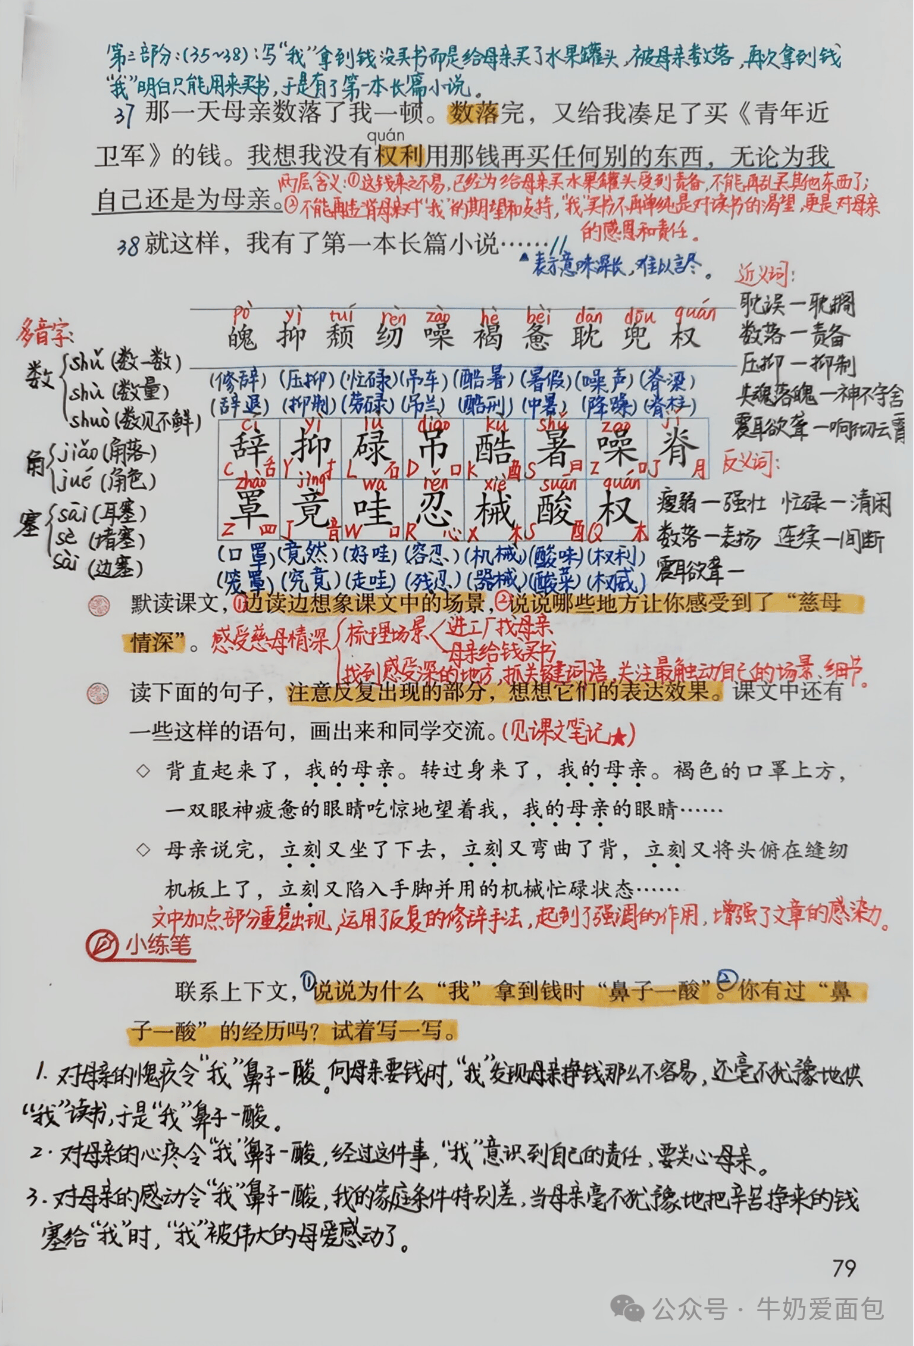 第二部分:(35~38):写“我”拿到钱没买书而是给母亲买了水果罐头,被母亲数落,再次拿到钱
“我”明白只能用来买书,于是有了第一本长篇小说。
37 那一天母亲数落了我一顿。数落完，又给我凑足了买《青年近
quán
卫军》的钱。我想我没有权利用那钱再买任何别的东西，无论为我
自己还是为母亲。
两层含义:①这钱来之不易,已经为给母亲买水果罐头受到责备,不能再乱买其他东西了;
②不能再违背母亲对“我”的期望和支持,“我”买书不再单纯是对读书的渴望,更是对母亲
的感恩和责任。
38 就这样，我有了第一本长篇小说……
表示意味深长,难以言尽。
pò yì tuí rèn zào hè bèi dān dōu quán
魄 抑 颓 纫 噪 褐 惫 耽 兜 权
多音字:
数 shǔ(数一数)
shù(数量)
shuò(数见不鲜)
角 jiǎo(角落)
jué(角色)
塞 sāi(耳塞)
sè(堵塞)
sài(边塞)
(修辞)(压抑)(忙碌)(吊车)(酷暑)(暑假)(噪声)(脊梁)
(辞退)(抑制)(劳碌)(吊兰)(酷刑)(中暑)(降躁)(脊柱)
cí yì lù diào kù shǔ zào jǐ
辞 抑 碌 吊 酷 暑 噪 脊
C 舌 Y 扌 L 石 D 口 K 酉 S 日 Z 口 J 月
zhào jìng wā rěn xiè suān quán
罩 竟 哇 忍 械 酸 权
Z 罒 J 音 W 口 R 心 X 木 S 酉 Q 木
(口罩)(竟然)(好哇)(容忍)(机械)(酸味)(权利)
(笼罩)(究竟)(走哇)(残忍)(器械)(酸菜)(权威)
近义词:
耽误—耽搁
数落—责备
压抑—抑制
失魂落魄—神不守舍
震耳欲聋—响彻云霄
反义词:
瘦弱—强壮 忙碌—清闲
数落—表扬 连续—间断
震耳欲聋—
默读课文，①边读边想象课文中的场景，②说说哪些地方让你感受到了“慈母
情深”。
感受慈母情深 梳理场景 进工厂找母亲
母亲给钱买书
找到感受深的地方,抓关键词语,关注最触动自己的场景、细节。
读下面的句子，注意反复出现的部分，想想它们的表达效果。课文中还有
一些这样的语句，画出来和同学交流。(见课文笔记★)
◇ 背直起来了，我的母亲。转过身来了，我的母亲。褐色的口罩上方，
一双眼神疲惫的眼睛吃惊地望着我，我的母亲的眼睛……
◇ 母亲说完，立刻又坐了下去，立刻又弯曲了背，立刻又将头俯在缝纫
机板上了，立刻又陷入手脚并用的机械忙碌状态……
文中加点部分重复出现,运用了反复的修辞手法,起到了强调的作用,增强了文章的感染力。
小练笔
联系上下文，①说说为什么“我”拿到钱时“鼻子一酸”。②你有过“鼻
子一酸”的经历吗？试着写一写。
1. 对母亲的愧疚令“我”鼻子一酸。向母亲要钱时,“我”发现母亲挣钱那么不容易,还毫不犹豫地供
“我”读书,于是“我”鼻子一酸。
2. 对母亲的心疼令“我”鼻子一酸,经过这件事,“我”意识到自己的责任,要关心母亲。
3. 对母亲的感动令“我”鼻子一酸,我的家庭条件特别差,当母亲毫不犹豫地把辛苦挣来的钱
塞给“我”时,“我”被伟大的母爱感动了。
79
公众号 · 牛奶爱面包